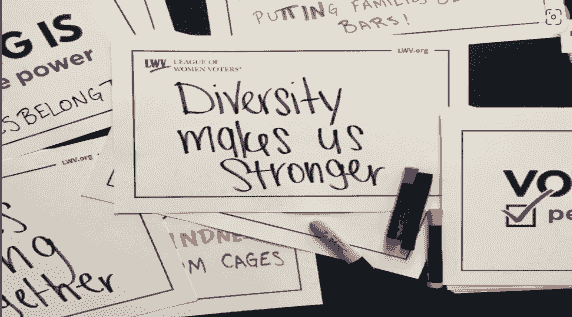 PUTTING FAMILIES
BARS!
G IS
power
BELONG
LWV.org
LWV
LEAGUE OF
WOMEN VOTERS®
Diversity
makes us
Stronger
LWV.org
VO
pe
INDNE
M CAGES
ng
gether